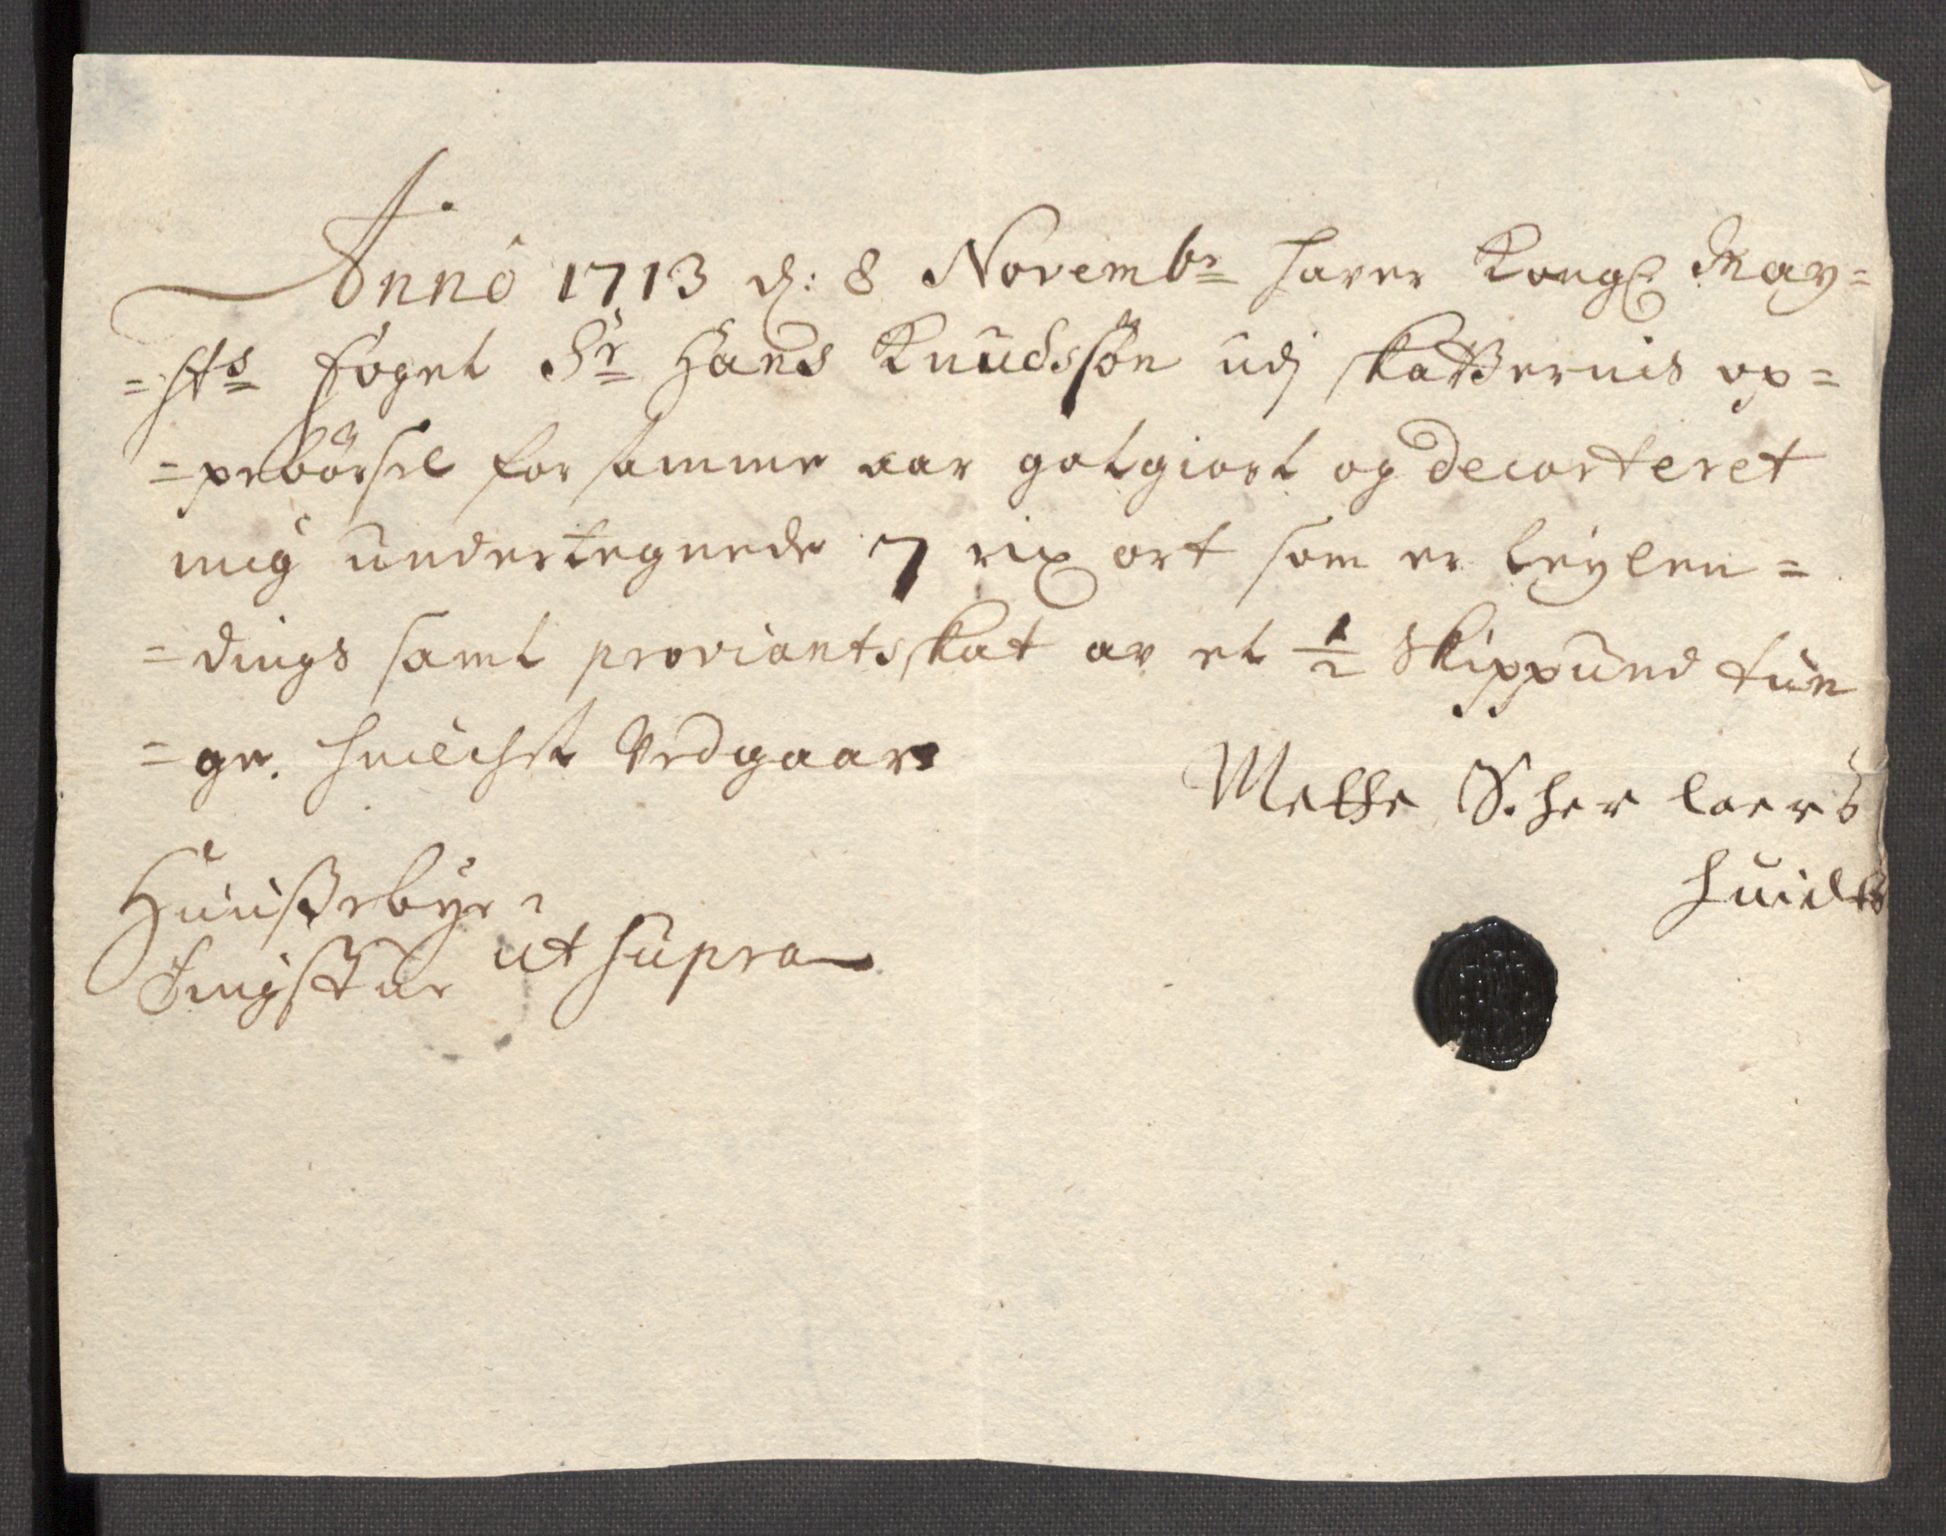 Anno 1713 d: 8 Novembr haver Kongl May=
=hts foget Sr Hans Knudssön udj skatternis op=
=pebörsel for samme aar gotgiort og decorteret
mig undertegnede 7 rix ort som er leylen=
=dings samt proviantskat av et 1/2 Skippund tun
=ge. huilchet Vedgaar
Mette Scher laers
Huusebye
Tingstue ut supra